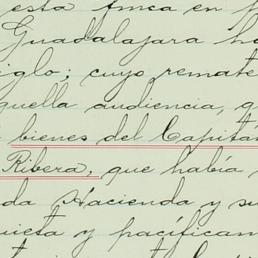 esta finca en p
Guadalajara ha
siglo; cuyo remate
quella audiencia, q
bienes del Capitán
Ribera, que había
da Hacienda y su
uieta y pacíficam